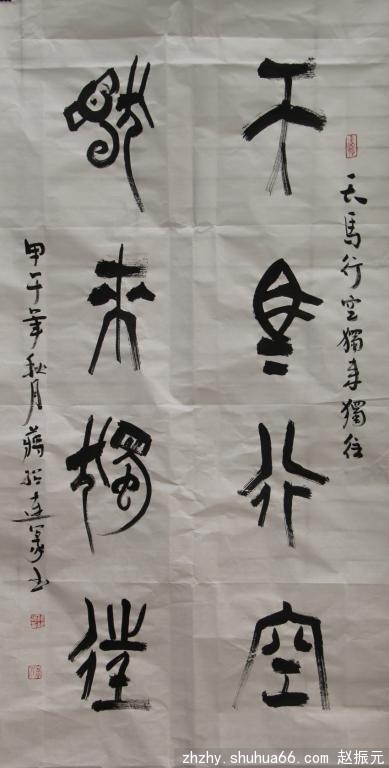 天馬行空獨来獨往
天馬行空
獨來獨往
甲午年秋月蔣
zhzhy.shuhua66.com 赵振元